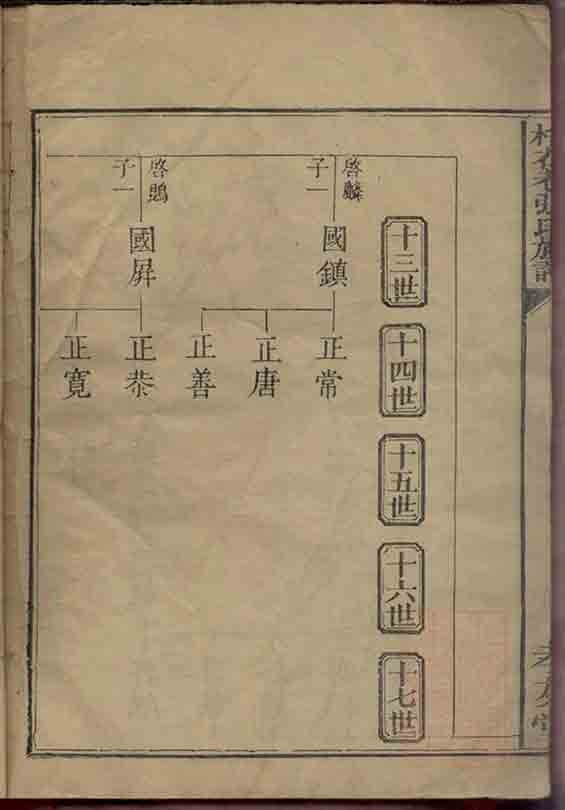 張氏族譜
十三世
十四世
十五世
十六世
十七世
啓麟
子一
國鎮
正常
正唐
正善
啓鵾
子一
國屏
正恭
正寬